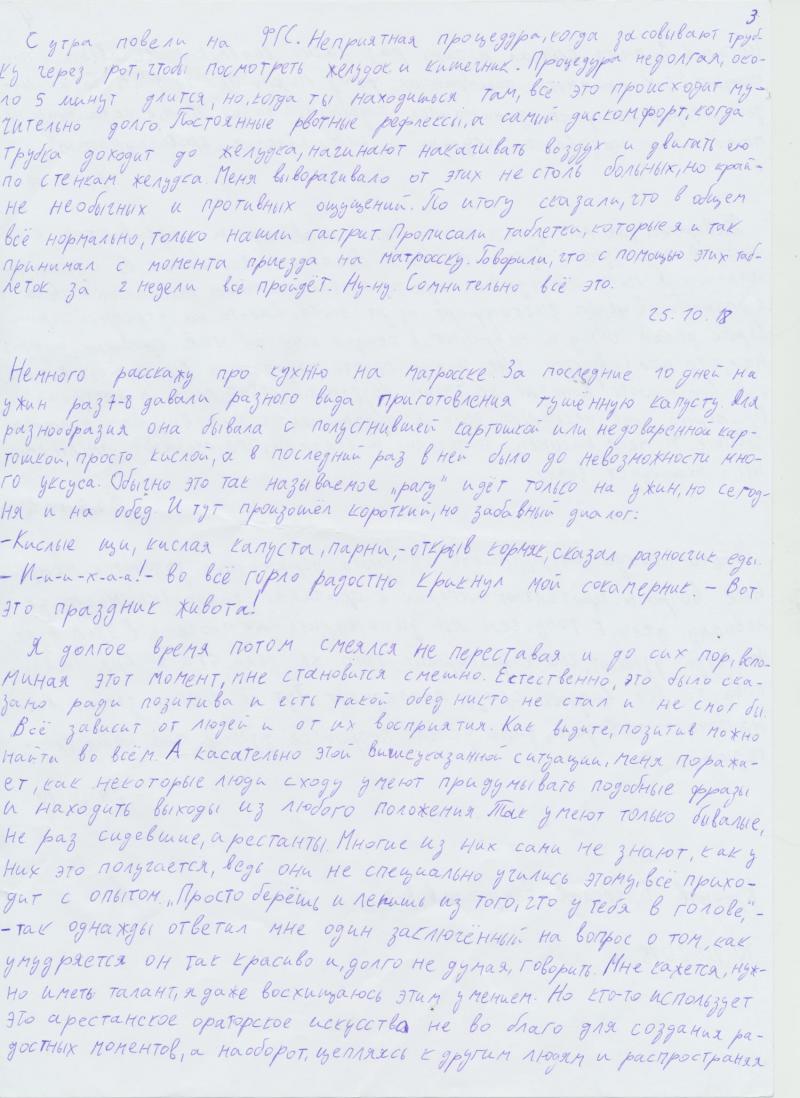 3
С утра повели на ФГС. Неприятная процедура, когда засовывают труб-
ку через рот, чтобы посмотреть желудок и кишечник. Процедура недолгая, око-
ло 5 минут длится, но, когда ты находишься там, всё это происходит му-
чительно долго. Постоянные рвотные рефлексы, а самый дискомфорт, когда
трубка доходит до желудка, начинают накачивать воздух и двигать ею
по стенкам желудка. Меня выворачивало от этих не столь больных, но край-
не необычных и противных ощущений. По итогу сказали, что в общем
всё нормально, только нашли гастрит. Прописали таблетки, которые я и так
принимал с момента приезда на матросску. Говорили, что с помощью этих таб-
леток за 2 недели всё пройдёт. Ну-ну. Сомнительно всё это.
25.10.18
Немного расскажу про кухню на матросске. За последние 10 дней на
ужин раз 7-8 давали разного вида приготовления тушённую капусту. Для
разнообразия она бывала с полусгнившей картошкой или недоваренной кар-
тошкой, просто кислой, а в последний раз в ней было до невозможности мно-
го уксуса. Обычно это так называемое „рагу" идёт только на ужин, но сегод-
ня и на обед. И тут произошёл короткий, но забавный диалог:
- Кислые щи, кислая капуста, парни, - открыв кормяк, сказал разносчик еды.
- И-и-и-ха-а! - во всё горло радостно крикнул мой сокамерник. - Вот
это праздник живота!
Я долгое время потом смеялся не переставая и до сих пор, вспо-
миная этот момент, мне становится смешно. Естественно, это было ска-
зано ради позитива и есть такой обед никто не стал и не смог бы.
Всё зависит от людей и от их восприятия. Как видите, позитив можно
найти во всём. А касательно этой вышеуказанной ситуации, меня поража-
ет, как некоторые люди сходу умеют придумывать подобные фразы
и находить выходы из любого положения. Так умеют только бывалые,
не раз сидевшие, арестанты. Многие из них сами не знают, как у
них это получается, ведь они не специально учились этому, всё прихо-
дит с опытом. „Просто берёшь и лепишь из того, что у тебя в голове," -
- так однажды ответил мне один заключённый на вопрос о том, как
умудряется он так красиво и, долго не думая, говорить. Мне кажется, нуж-
но иметь талант, я даже восхищаюсь этим умением. Но кто-то использует
это арестанское ораторское искусство не во благо для создания ра-
достных моментов, а наоборот, цепляясь к другим людям и распространяя